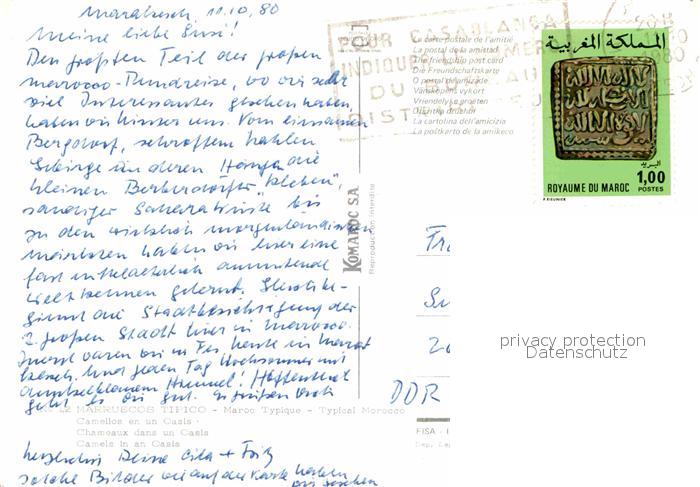 Marakesch, 11.10.80
Meine liebe Susi!
Den größten Teil der großen
Marocco-Rundreise, wo wir sehr
viel Interessantes gesehen haben,
haben wir hinter uns. Vom einsamen
Bergdorf, schroffem kahlen
Gebirge an deren Hänge die
kleinen Berberdörfer "kleben",
sandiger Saharawüste bis
zu den wirklich morgenländischen
Märkten haben wir hier eine
fast mittelalterlich anmutende
Welt kennen gelernt.
die Stadtbesichtigung der
2. großen Stadt hier in Marocco.
Zuerst waren wir in Fes, heute in Marra-
kesch. Und jeden Tag Hochsommer mit
Himmel! Hoffentlich
geht es Dir gut.
herzlichst Deine Cila + Fritz
solche Bilder wie auf der Karte haben
wir gesehen
POUR CASABLANCA
INDIQUEZ
DU
DIST
La carte postale de l'amitié
La postal de la amistad
The friendship post card
Die Freundschaftskarte
O postal da amizade
Vänskapens vykort
Vriendelijke groeten
La cartolina dell'amicizia
La poŝtkarto de la amikeco
المملكة المغربية
البريد
1,00
ROYAUME DU MAROC POSTES
KOMAROC S.A.
Reproduction interdite
Fr
Su
DDR
privacy protection
Datenschutz
MARRUECOS TIPICO - Maroc Typique - Typical Morocco
Camellos en un Oasis
Chameaux dans un Oasis
Camels in an Oasis
FISA - I
Dep. Leg